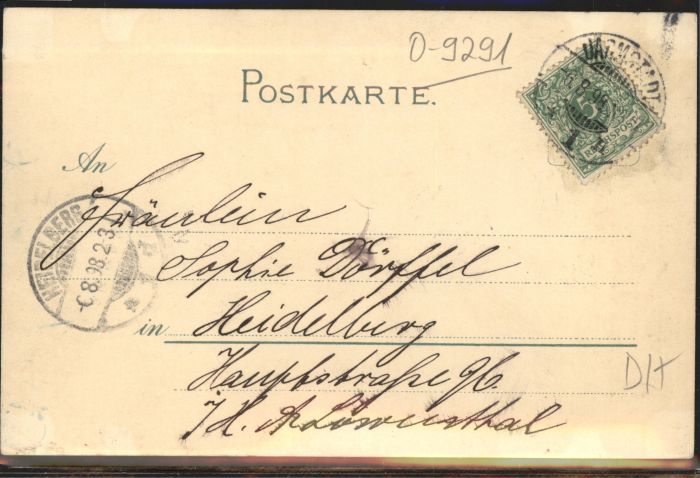 O-9291
POSTKARTE.
DARMSTADT
6.8.98
5
REICHSPOST
An
Fräulein
Sophie Dörffel
HEIDELBERG
6.8.98.2-3
in Heidelberg
Hauptstraße 96.
D/H